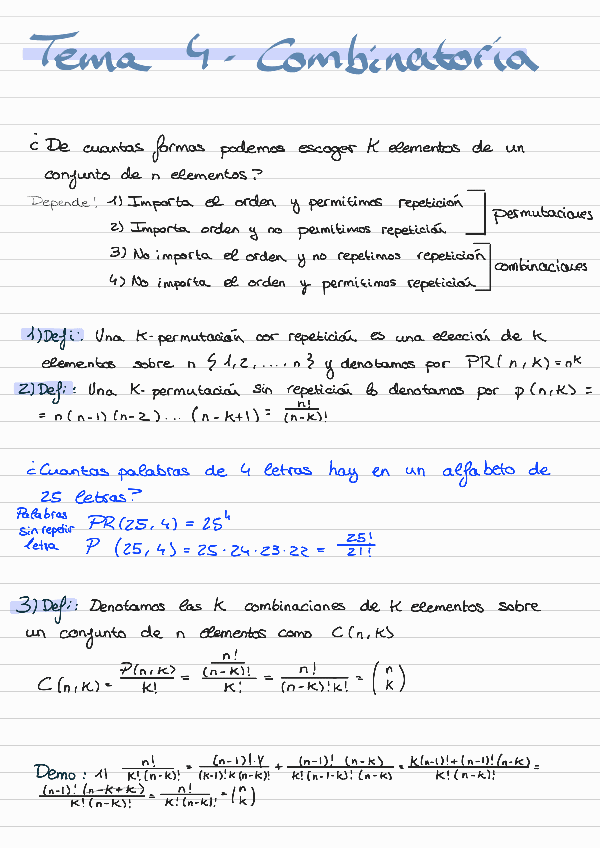 Tema 4 - Combinatoria
¿ De cuantas formas podemos escoger K elementos de un
conjunto de n elementos?
Depende! 1) Importa el orden y permitimos repetición
2) Importa orden y no permitimos repetición
permutaciones
3) No importa el orden y no repetimos repetición
4) No importa el orden y permitimos repetición
combinaciones
1) Defi: Una K-permutación cor repetición es una elección de k
elementos sobre n {1,2,....n} y denotamos por PR(n,k)=n^k
2) Defi: Una K-permutación sin repetición lo denotamos por p(n,k) =
= n(n-1)(n-2)...(n-k+1) = n!/(n-k)!
¿Cuantas palabras de 4 letras hay en un alfabeto de
25 letras?
Palabras
sin repetir PR(25,4) = 25^4
letra P (25,4) = 25·24·23·22 = 25!/21!
3) Defi: Denotamos las K combinaciones de K elementos sobre
un conjunto de n elementos como C(n,k)
C(n,k) = P(n,k)/k! = (n!/(n-k)!)/k! = n!/((n-k)!k!) = (n k)
Demo: 1) n!/(k!(n-k)!) = / + (n-1)!(n-k)/(k!(n-1-k)!(n-k)) = k(n-1)!+(n-1)!(n-k)/(k!(n-k)!) =
(n-1)!(n-k+k)/(k!(n-k)!) = n!/(k!(n-k)!) = (n k)